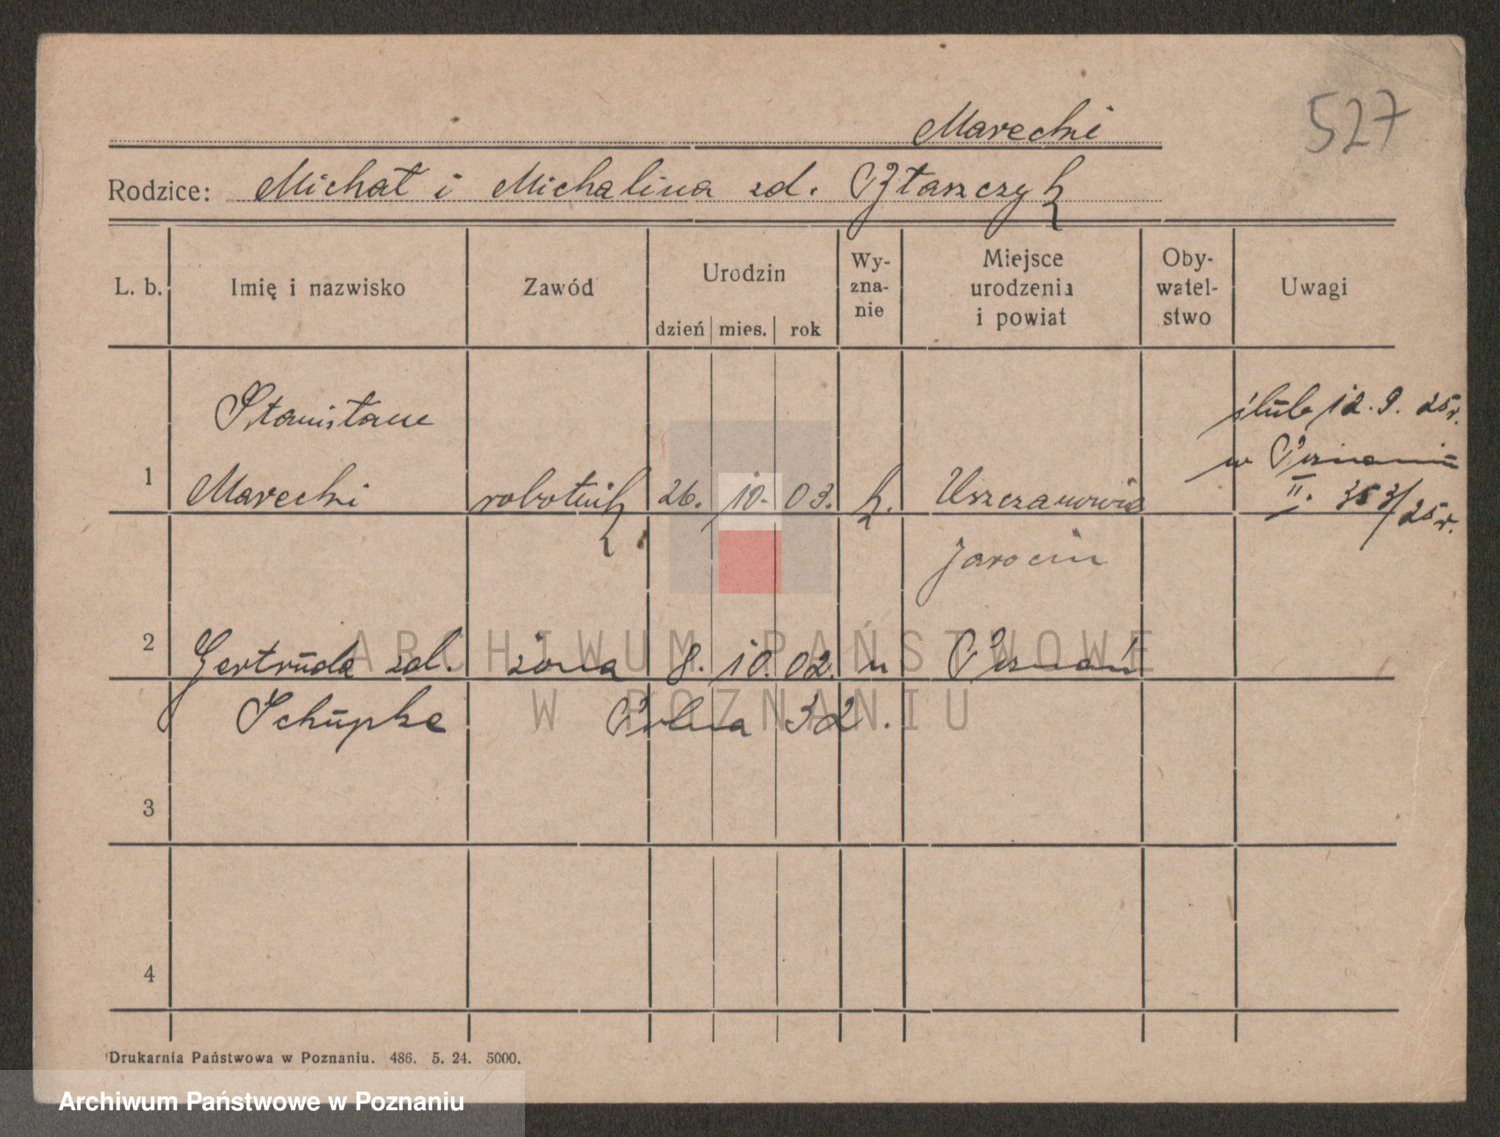 527
Marecki
Rodzice: Michał i Michalina zd.
L. b. Imię i nazwisko Zawód Urodzin dzień mies. rok Wy-zna-nie Miejsce urodzenia i powiat Oby-watel-stwo Uwagi
Stanisław
ślub 12. 9. 25 r.
w Poznaniu
1 Marecki robotnik 26. 10. 03. k.
II. 353/25 r.
Jarocin
2 Gertruda zd. żona 8. 10. 02. Poznań
Schüpke Polna 32.
3
4
Drukarnia Państwowa w Poznaniu. 486. 5. 24. 5000.
ARCHIWUM PAŃSTWOWE
W POZNANIU
Archiwum Państwowe w Poznaniu